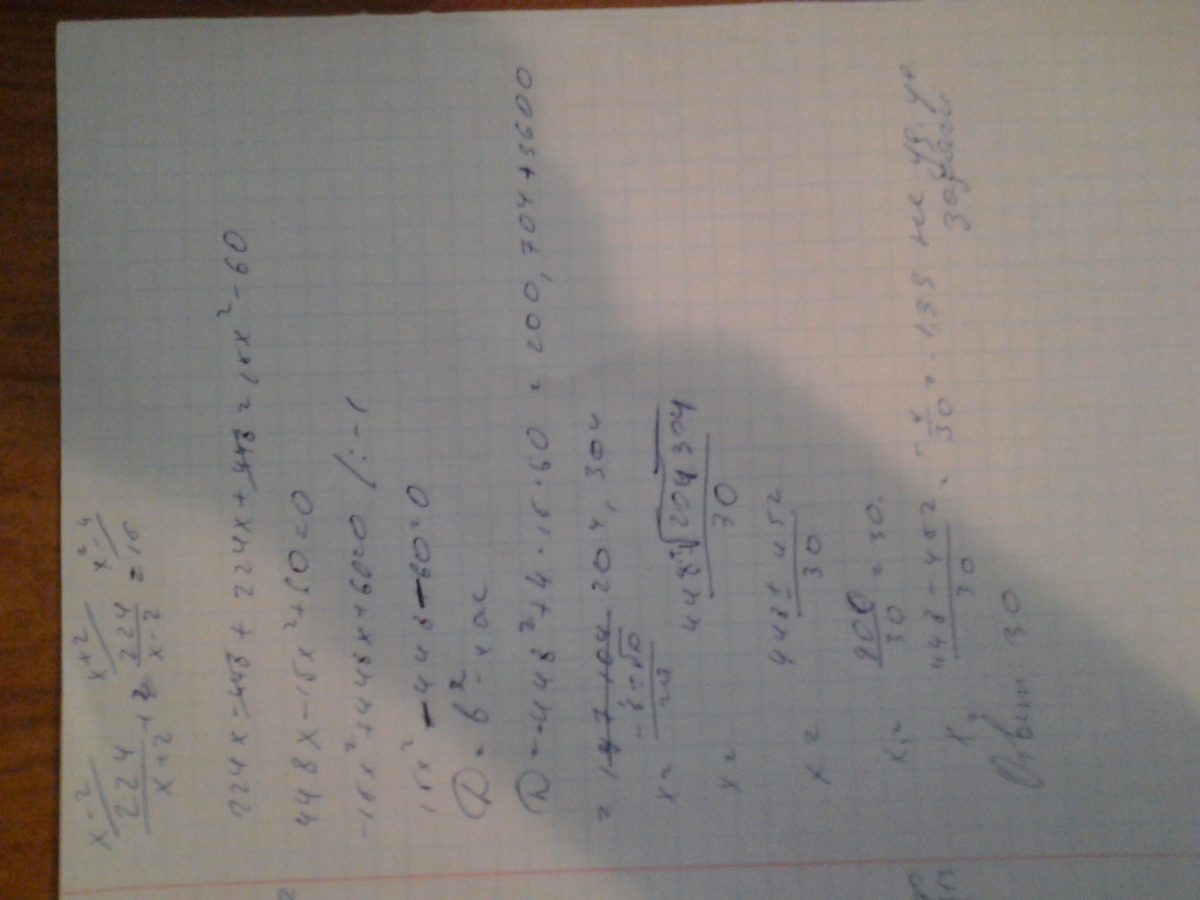 x-2 x+2 x²-4
224/x+2 + 224/x-2 = 15
224x-448+224x+448=15x²-60
448x-15x²+60=0
-15x²+448x+60=0 /:-1
15x²-448-60=0
D=b²-4ac
D=-448²+4·15·60=200,704+3600
=204,304
x= -b±√D/2a
x= 448±√204304/30
x= 448±452/30
x₁= 900/30=30.
x₂= 448-452/30=-4/30=-1,33 не уд. ус
Ответ: 30